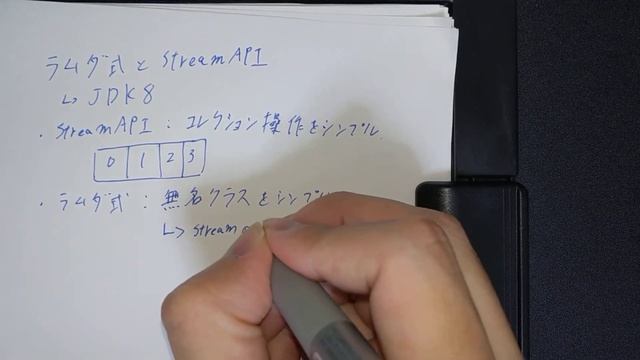 ラムダ式と StreamAPI
↳ JDK8
・StreamAPI : コレクション操作をシンプル
0 1 2 3
・ラムダ式 : 無名クラスをシンプル
↳ stream